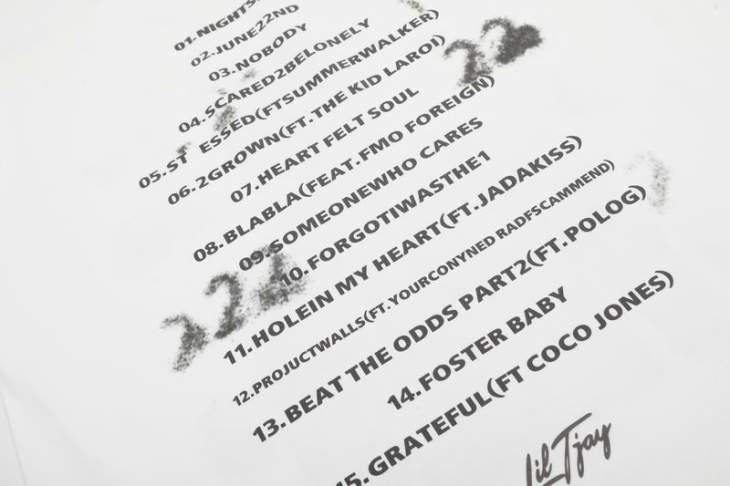 01.NIGHTS
02.JUNE22ND
03.NOBODY
04.SCARED2BELONELY
05.ST ESSED(FTSUMMERWALKER)
06.2GROWN(FT.THE KID LAROI)
07.HEART FELT SOUL
08.BLABLA(FEAT.FMO FOREIGN)
09.SOMEONEWHO CARES
10.FORGOTIWASTHE1
11.HOLEIN MY HEART(FT.JADAKISS)
12.PROJUCTWALLS(FT.YOURCONYNED RADFSCAMMEND)
13.BEAT THE ODDS PART2(FT.POLOG)
14.FOSTER BABY
15.GRATEFUL(FT COCO JONES)
222
22
Lil Tjay